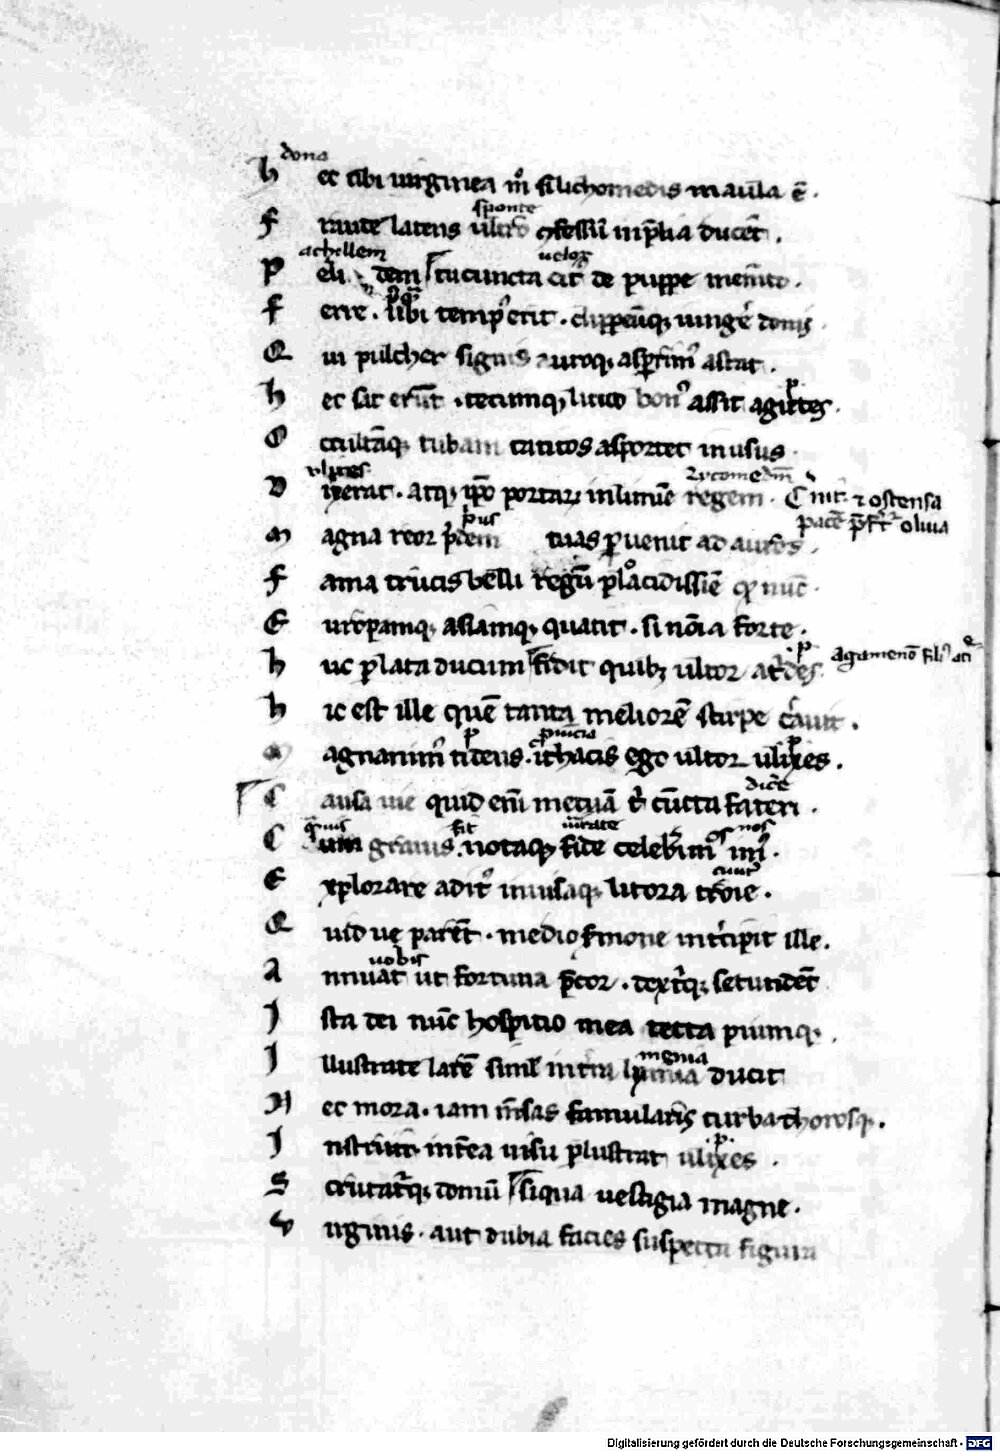 dona
hec tibi uirginea mº si lichomedis in aula ē.
sponte
fraude latens ultrͦ ꝯfessū in p̄lia ducēt.
achellem uelox
Peli dem tu cuncta cit᷒ de puppe memēto.
ferre. tibi tempꝰ erit. clippeūqꝫ iunge᷒ donis
Qui pulcher signis auroqꝫ aspᷣrimꝰ astat.
hec sit erūt. tecumqꝫ lituo bonꝰ assit agirtes.
Occultāqꝫ tubam tacitos asportet in usus
ulixes Lycomedm̄
Dixerat. atqꝫ ip̄o portaꝝ in limine regem. Cͥnit᷒ ⁊ ostensa
pacē p̄fert oliua
pͥus
Magna reor pͥdem tuas ꝑuenit ad aures.
fama trucis belli regū placidissime qͦ nūc
Europamqꝫ asiamqꝫ quatit. si noīa forte.
huc ꝑlata ducum fidit quibꝫ ultor atͥdes agamenō filiꝰ atͥ
hic est ille quē tanta meliorē stirpe c̄auit.
prouincia
Magnanimꝰ tideus. ithacis ego ultor ulixes.
dice᷒
Causa uie quid enī metuā tͥ cūcta fateri.
qᵃmuis sit
Cum graius. notaqꝫ fide celebᷣrimꝰ
Explorare aditꝰ inuisaqꝫ litora troie.
Quid ue parēt. medio s̄mone intᷣcipit ille.
uobis
Annuat ut fortuna p̄cor. dextͥqꝫ secundēt
Ista dei nūc hospitio mea tecta piumqꝫ.
menia
Illustrate larē simul intra limina ducit
Nec mora. iam mēsas famularis turba thorosqꝫ.
Instruit. intᷣea uisu ꝑlustrat ulixes.
Scrutaturqꝫ domū siqua uestigia magne.
Virginis. aut dubia facies suspecta figura
Digitalisierung gefördert durch die Deutsche Forschungsgemeinschaft - DFG